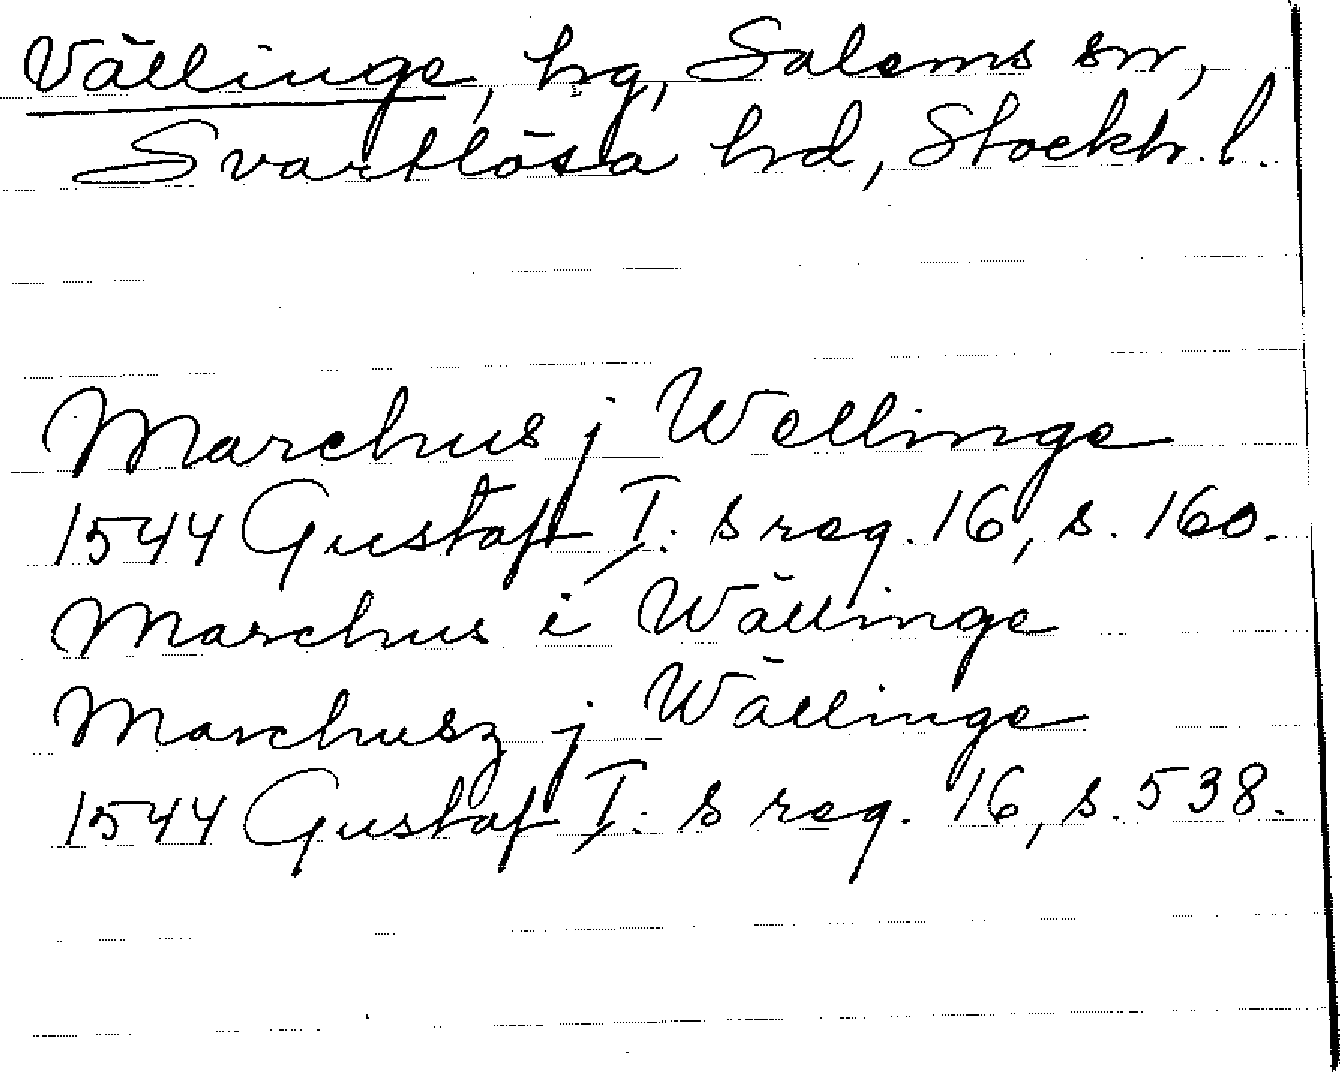 Vällinge, hg, Salems sn,
Svartlösa hd, Stockh. l.
Marchus j Wellinge
1544 Gustaf I: s reg. 16, s. 160.
Marchus i Wällinge
Marchusz j Wällinge
1544 Gustaf I: s reg. 16, s. 538.